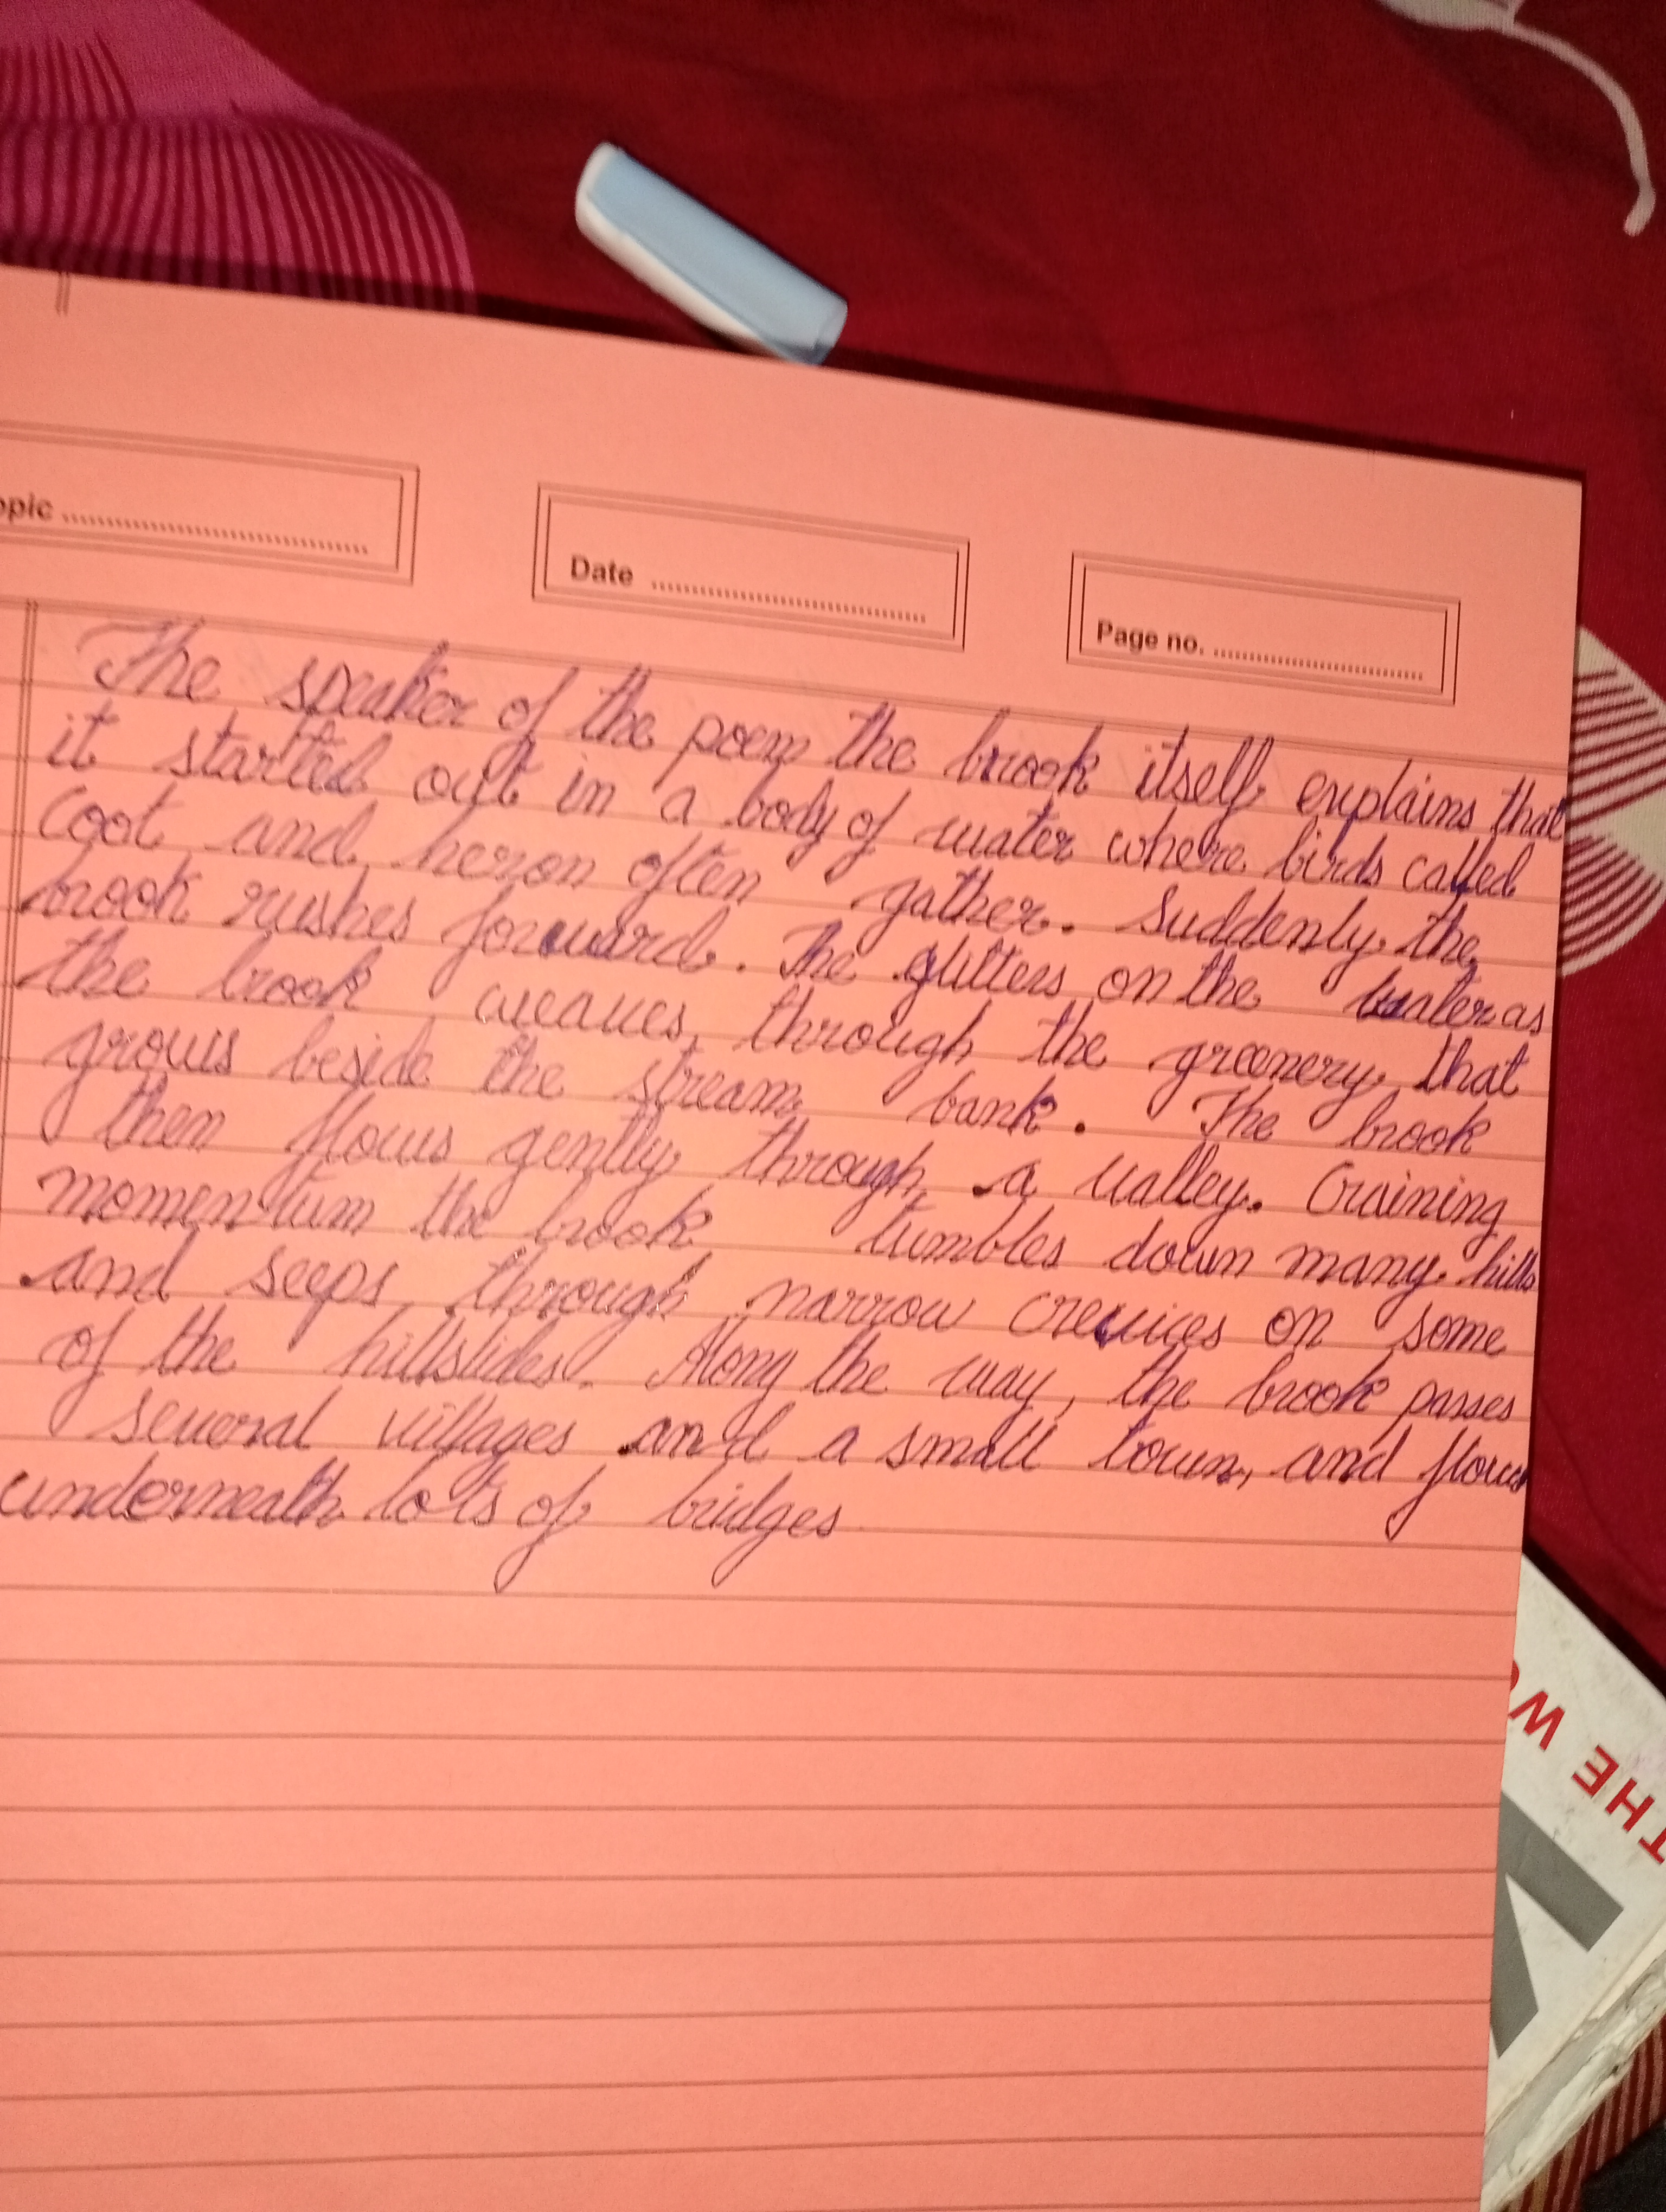 opic ..............................
Date ..............................
Page no. ..............................
The speaker of the poem the brook itself explains that
it started out in a body of water where birds called
coot and heron often gather. Suddenly the
brook rushes forward. The glitters on the water as
the brook weaves through the greenery that
grows beside the stream bank. The brook
then flows gently through a valley. Graining
momentum the brook tumbles down many hills
and seeps through narrow crevices on some
of the hillslides. Along the way, the brook passes
several villages and a small town, and flows
underneath lots of bridges
THE WO